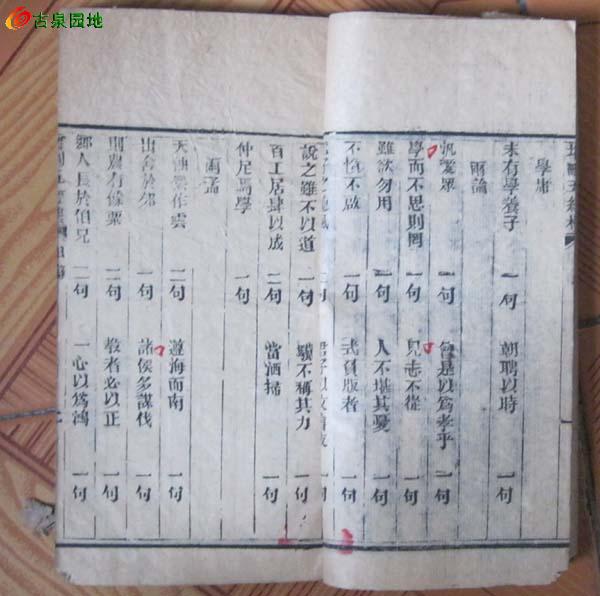 古泉园地
學庸
未有學養子 一句 朝聘以時 一句
兩論
汎愛眾 一句 曾是以爲孝乎 一句
學而不思則罔 一句 見志不從 一句
雖欲勿用 一句 人不堪其憂 一句
不憤不啟 一句 式負版者 一句
說之雖不以道 一句 驥不稱其力 一句
百工居肆以成 二句 當洒掃 一句
仲尼焉學 一句
兩孟
天油然作雲 二句 遵海而南 一句
出舍於郊 一句 諸侯多謀伐 一句
則農有餘粟 二句 教者必以正 一句
鄉人長於伯兄 二句 一心以爲鴻 一句